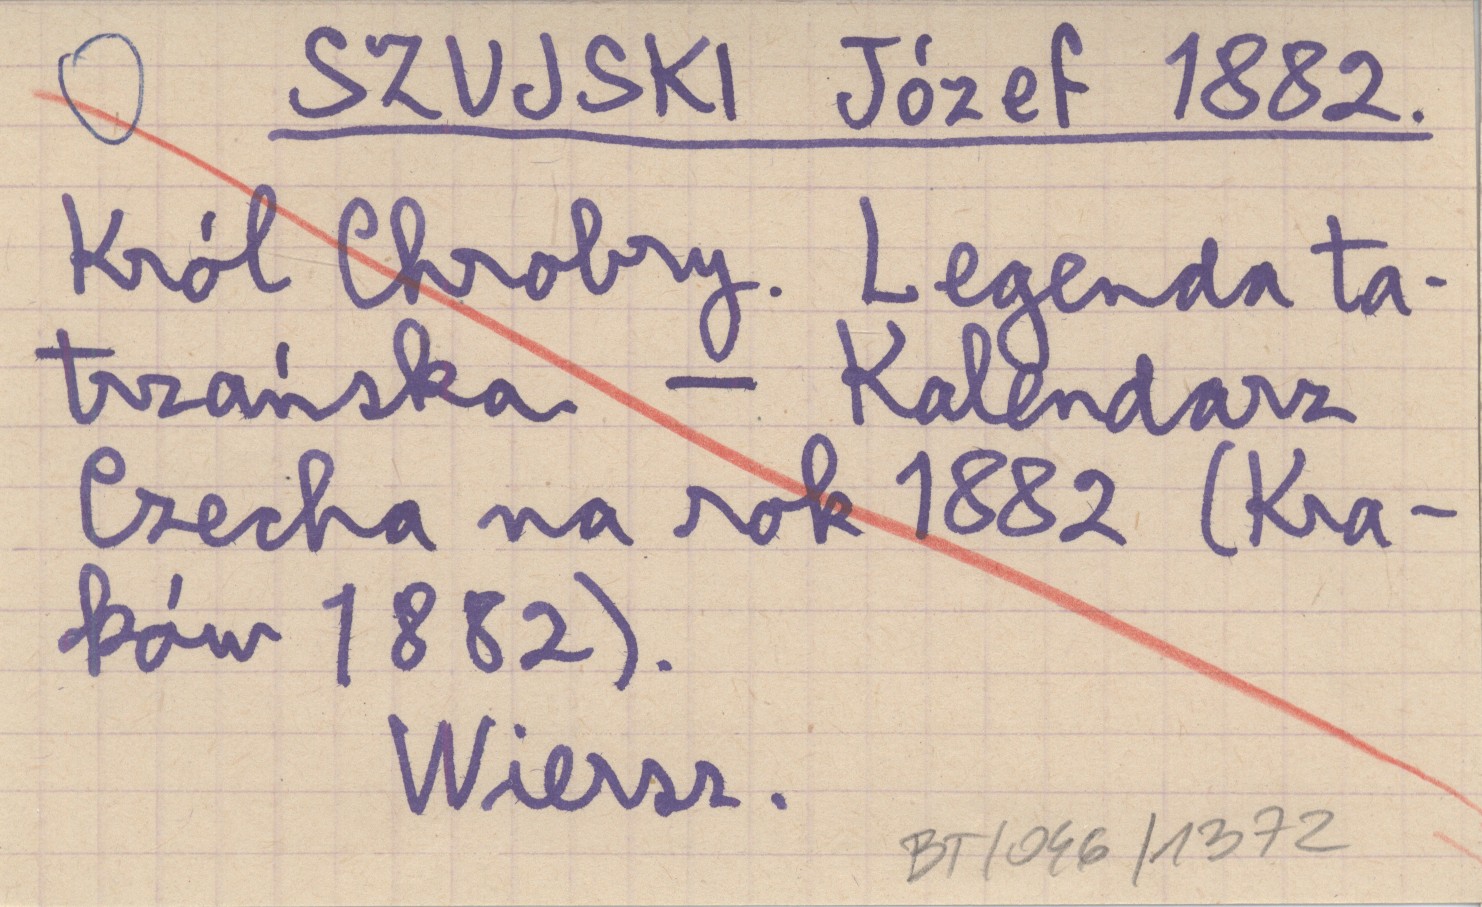 SZUJSKI Józef 1882.
Król Chrobry. Legenda ta-
trzańska — Kalendarz
Czecha na rok 1882 (Kra-
ków 1882).
Wiersz.
BT/046/1372